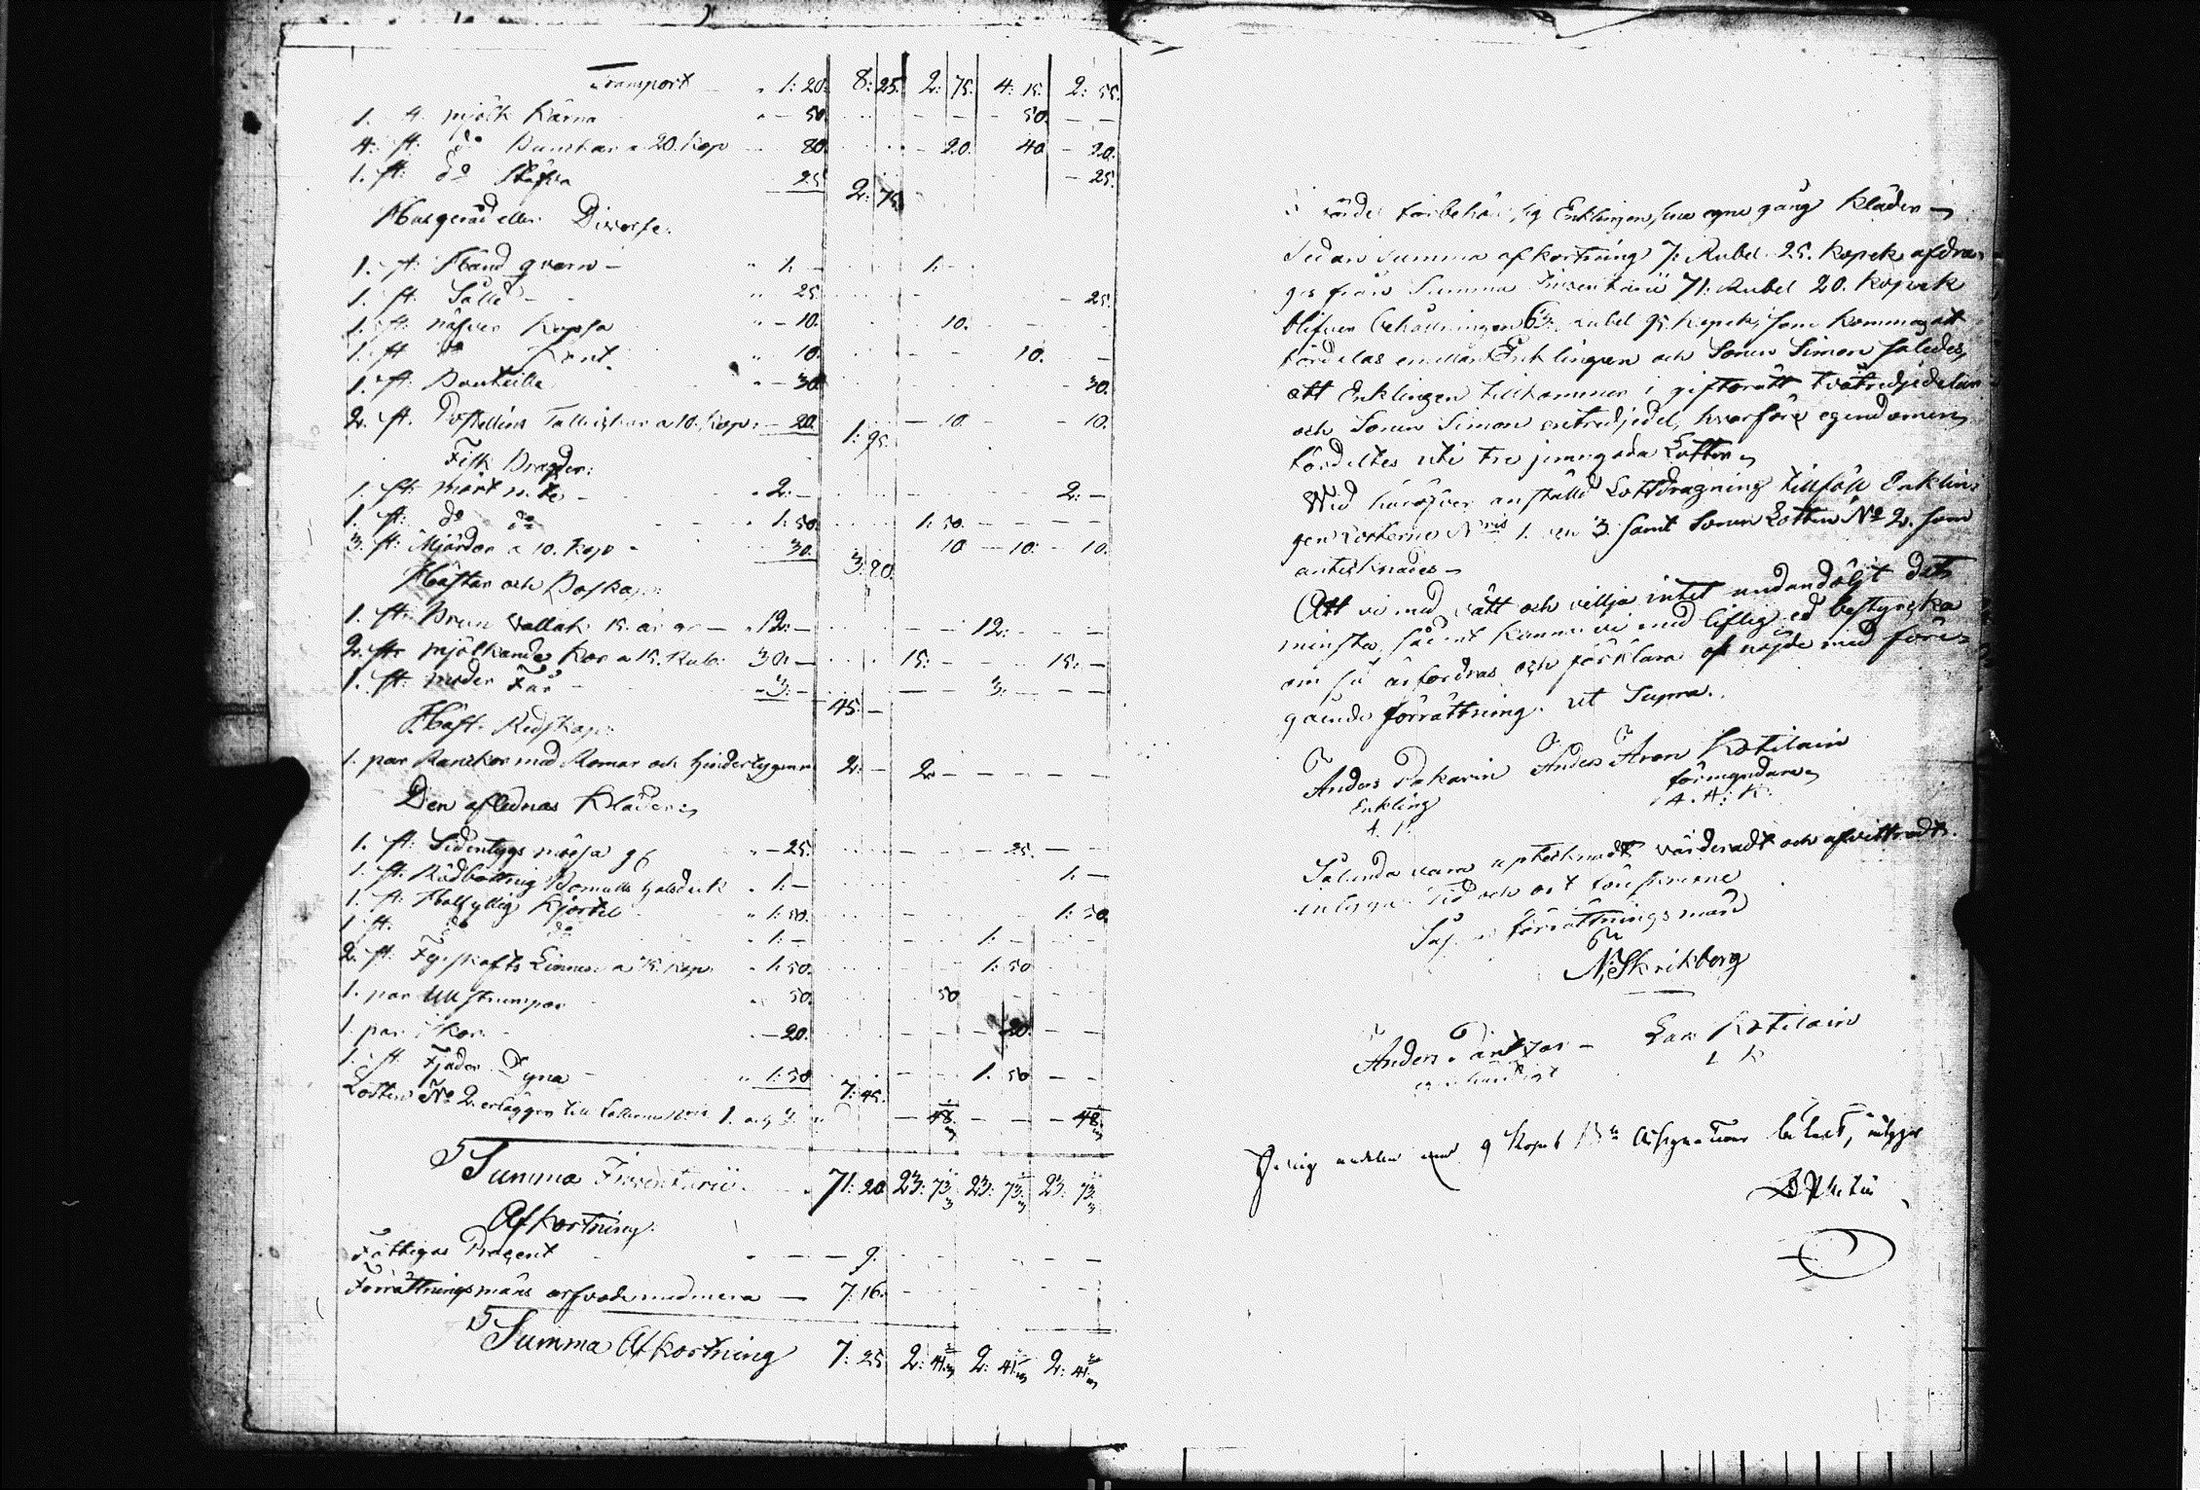 Transport 1: 20. 8: 25. 2: 75. 4: 15. 2: 55.
1. st. mjölk Kärna 50. 50.
4. st. do Bunckar a 20. Kop 80. 20. 40 20.
1. st. do Stäfva 25 2: 75. 25.
Husgeråd eller Diverse.
1. st. Hand qvarn 1: 1:
1. st. Såll 25 25.
1. st. näfver Kopsa 10. 10.
1. st. do Kont. 10. 10.
1. st. Bouteille 30. 30.
2. st. Postellins Tallrickar a 10. Kop. 20. 1: 95. 10. 10.
Fisk Bragder:
1. st. mört 2: 2:
1. st. do do 1: 50. 1: 50.
3. st. Mjärdor a 10. Kop 30. 3: 80. 10 10. 10.
Hästar och Boskap:
1. st. Brun Vallak 15. år gr 12: 12:
2. st. mjölkande Kor a 15. Rub. 30. 15: 15:
1. st. moder Får 3: 45. 3:
Häst Redskap:
1. par Ranckor med Romar och hindertygen 2: 2:
Den aflednas Kläder:
1. st. Sidentygs mössa 25. 25.
1. st. Rödbottnig Bomulls halsduk 1: 1:
1. st. Halfyllig Kjortel 1: 50. 1: 50.
1. st. do do 1: 1:
2. st. Fyrskafts Linnen a 75. Kop. 1: 50. 1: 50
1. par Ull strumpor 50. 50
1. par Skor 20. 20.
1. st. Fjäder Dyna 1: 50 7: 45. 1: 50
Lotten No 2. erlägger till Lotterne Nris 1. och 3. 48 48
Summa Inventarii 71: 20 23: 73 23: 73 23: 73
Afkortning.
Fattigas Procent 9.
Förrättningsmäns arfvode med mera 7: 16.
Summa Afkortning 7: 25 2: 41 2: 41 2: 41
förbehåller sig Enklingen sine egne gång Kläder
Sedan Summa afkortning 7: Rubel 25. Kopek afdra-
ges från Summa Inventarii 71: Rubel 20. Kopek
blifver behållningen 63: Rubel 95. Kopek, som kommer att
fördelas emellan Enklingen och Sonen Simon således,
att Enklingen tillkommer i giftorätt tvåtredjedelar
och Sonen Simon entredjedel, hvarföre egendomen
fördeltes uti tre jemngoda Lotter
Wid häröfver anställd Lottdragning tillföll Enklin-
gen Lotterne Nris 1. och 3. samt Sonen Lotten No 2. som
antecknades
Att vi med rätt och vilja intet undandöljt det
minsta, sådant kunna vi med liflig ed bestyrcka
om så ärfordras och förklara oss nöjde med före-
gående förrättning. ut Supra.
Anders Pakarin Anders Aron Kotilain
Enkling förmyndare
A. P. A. A: K.
Sålunda vara upteknadt värderadt och afvittradt
intyga Tid och ort förskrifne
förrättningsmän
N: Skrikberg
Anders Lars Kotilain
egenhändigt L K
9 Kopek B:o Assignationer betalt, intygar